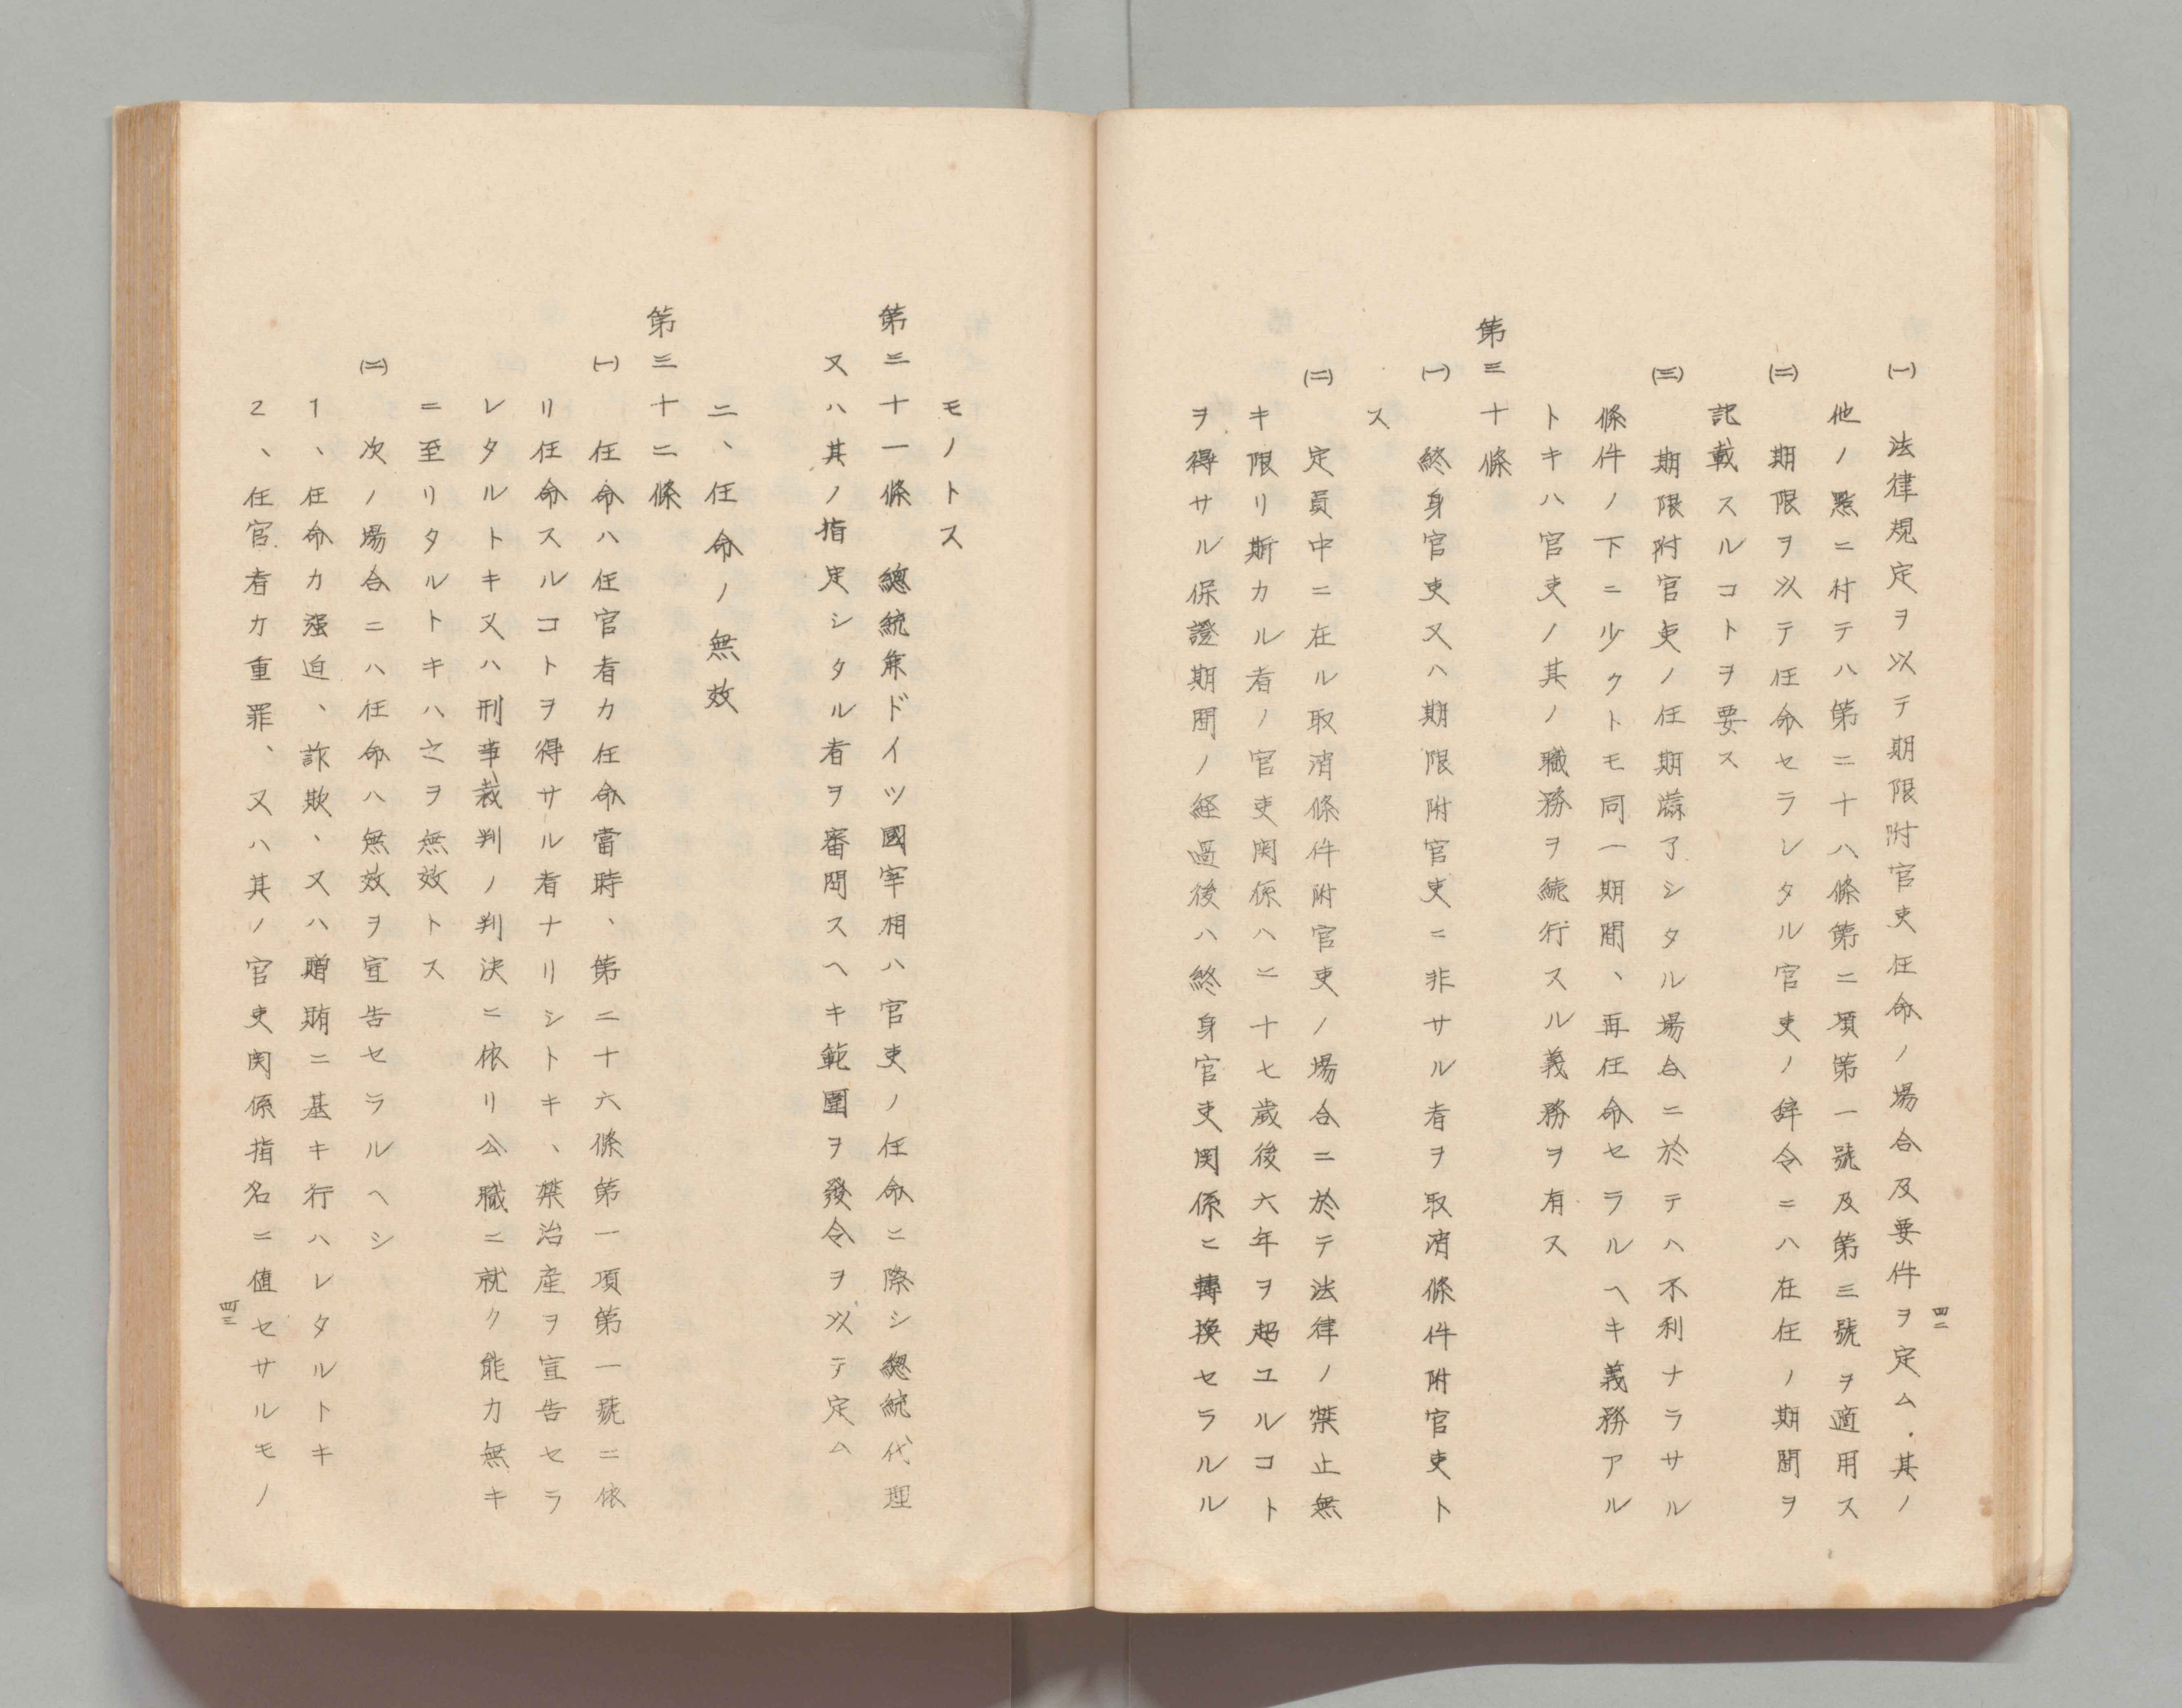 ㈠　法律規定ヲ以テ期限附官吏任命ノ場合及要件ヲ定ム．其ノ
他ノ點ニ付テハ第二十八條第二項第一號及第三號ヲ適用ス
㈡　期限ヲ以テ任命セラレタル官吏ノ辞令ニハ在任ノ期間ヲ
記載スルコトヲ要ス
㈢　期限附官吏ノ任期滿了シタル場合ニ於テハ不利ナラサル
條件ノ下ニ少クトモ同一期間、再任命セラルヘキ義務アル
トキハ官吏ノ其ノ職務ヲ続行スル義務ヲ有ス
第三十條
㈠　終身官吏又ハ期限附官吏ニ非サル者ヲ取消條件附官吏ト
ス
㈡　定員中ニ在ル取消條件附官吏ノ場合ニ於テ法律ノ禁止無
キ限リ斯カル者ノ官吏関係ハ二十七歳後六年ヲ超ユルコト
ヲ得サル保證期間ノ経過後ハ終身官吏関係ニ轉換セラルル
四二
モノトス
第三十一條　總統兼ドイツ國宰相ハ官吏ノ任命ニ際シ總統代理
又ハ其ノ指定シタル者ヲ審問スヘキ範圍ヲ發令ヲ以テ定ム
二、任命ノ無效
第三十二條
㈠　任命ハ任官者カ任命當時、第二十六條第一項第一號ニ依
リ任命スルコトヲ得サル者ナリシトキ、禁治産ヲ宣告セラ
レタルトキ又ハ刑事裁判ノ判決ニ依リ公職ニ就ク能力無キ
ニ至リタルトキハ之ヲ無效トス
㈡　次ノ場合ニハ任命ハ無效ヲ宣告セラルヘシ
1、任命カ强迫、詐欺、又ハ贈賄ニ基キ行ハレタルトキ
2、任官者カ重罪、又ハ其ノ官吏関係指名ニ値セサルモノ
四三